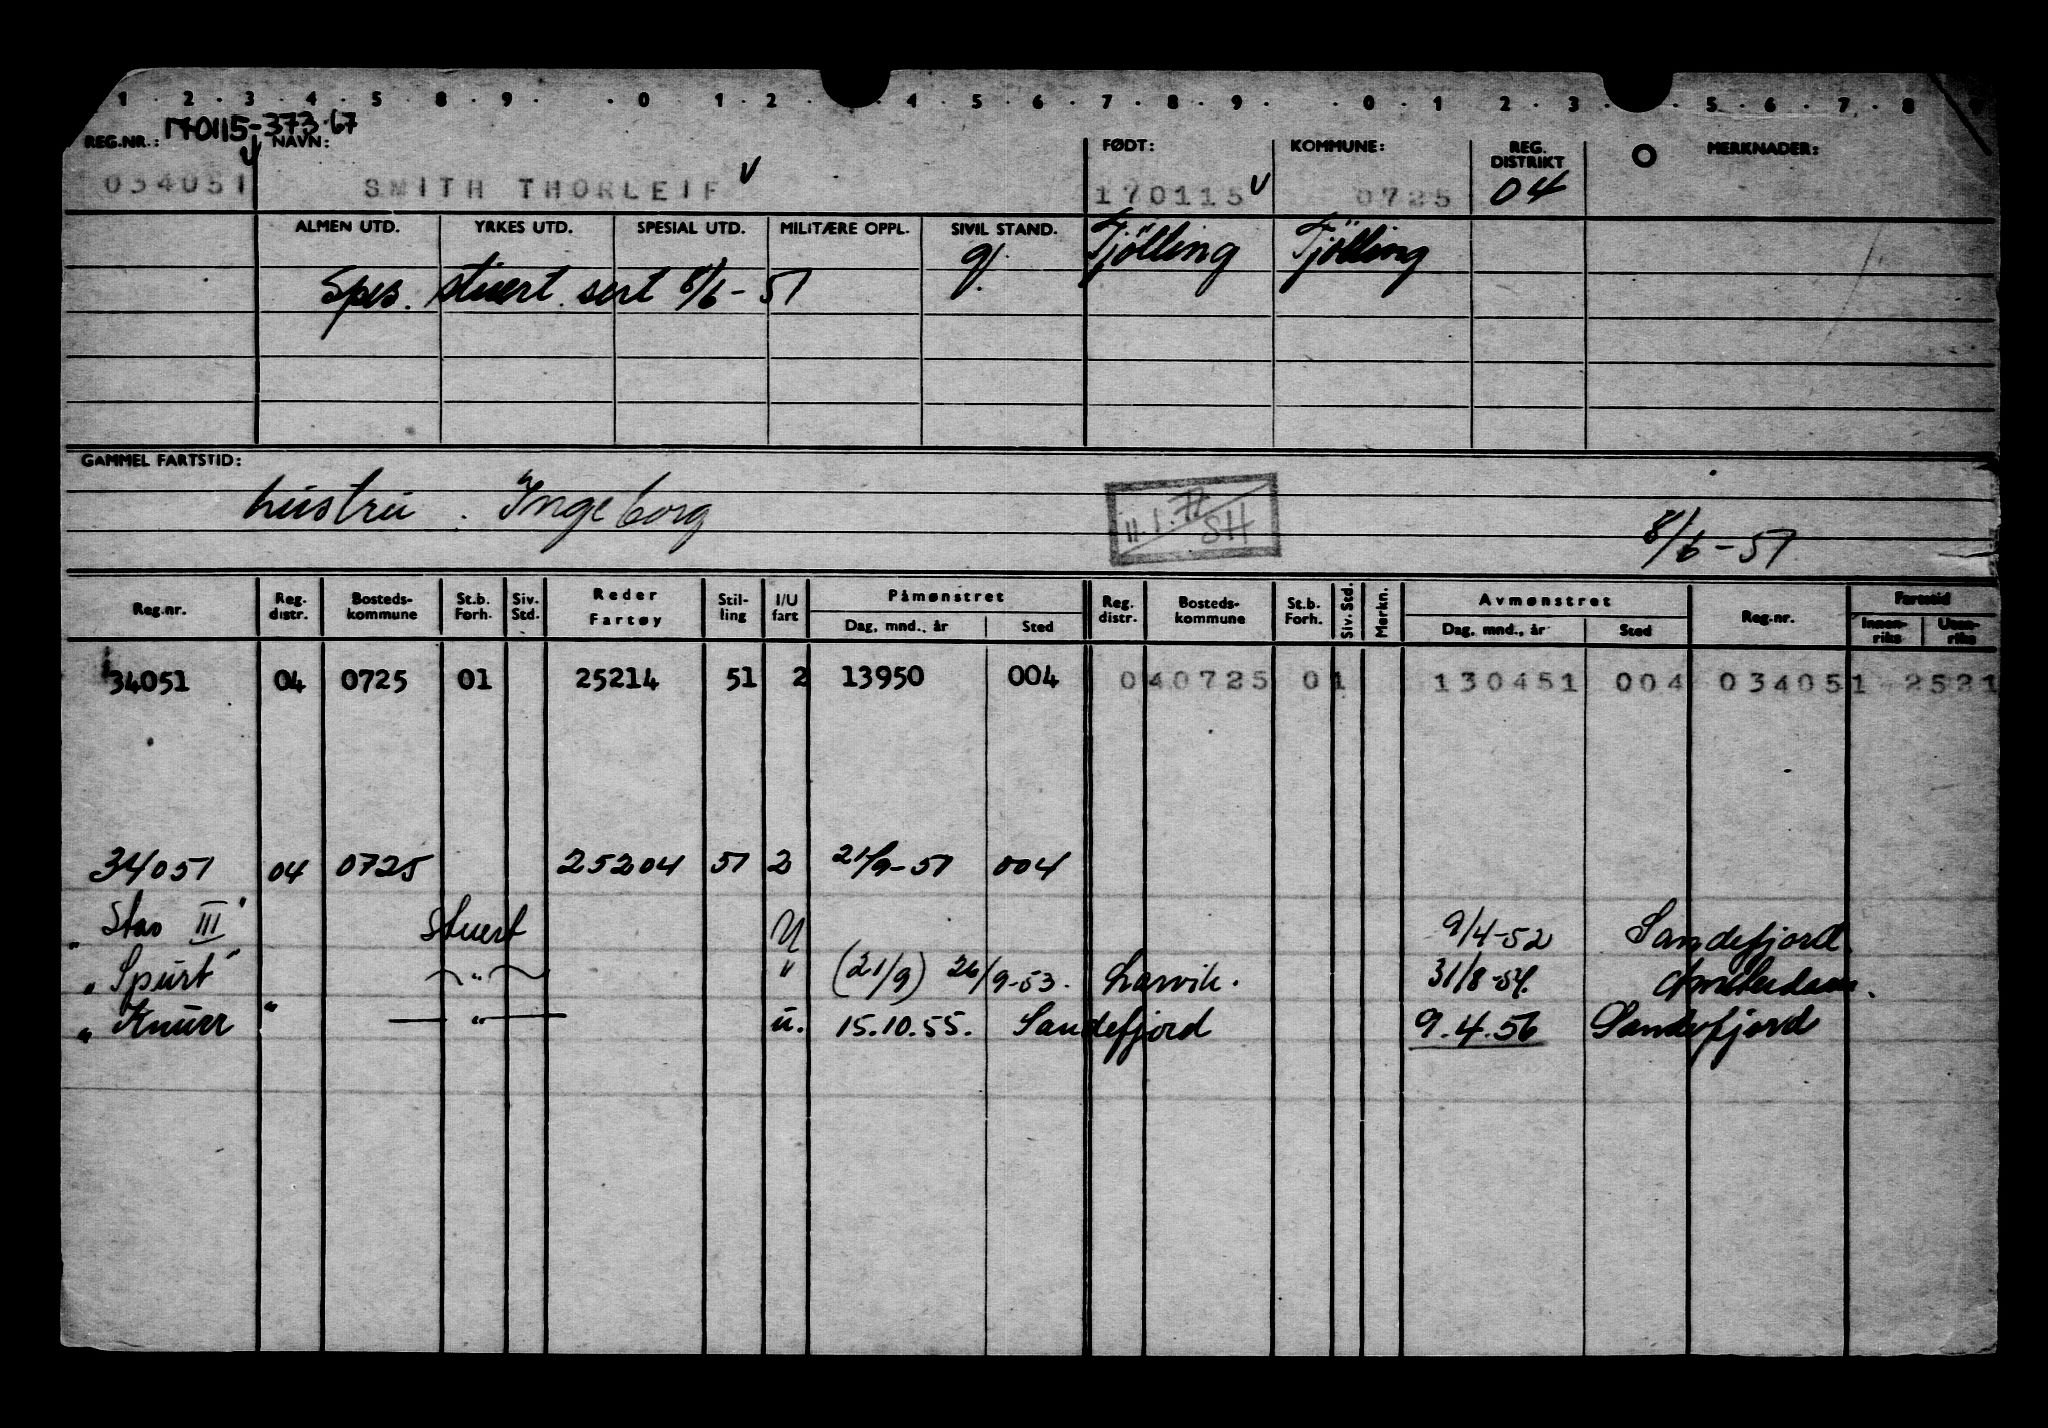 1 · 2 · 3 · 4 · 5 · 8 · 9 · · 0 · 1 · 2 · 4 · 5 · 6 · 7 · 8 · 9 · · 0 · 1 · 2 · 3 · 5 · 6 · 7 · 8 · 9
REG.NR.: 170115-373·67 NAVN: FØDT: KOMMUNE: REG. DISTRIKT MERKNADER:
034051 SMITH THORLEIF 170115 0725 04
ALMEN UTD. YRKES UTD. SPESIAL UTD. MILITÆRE OPPL. SIVIL STAND. Tjölling Tjölling
g.
Spes. stuert sert 8/6-51
GAMMEL FARTSTID:
hustru. Ingeborg 11.1.72 SH 8/6-51
Reg.nr. Reg. distr. Bosteds-kommune St.b. Forh. Siv. Std. Reder Fartøy Stil-ling I/U fart Påmønstret Dag, mnd., år Sted Reg. distr. Bosteds-kommune St.b. Forh. Siv. Std. Merkn. Avmønstret Dag, mnd., år Sted Reg.nr. Fartstid Innen-riks Uten-riks
34051 04 0725 01 25214 51 2 13950 004 040725 01 130451 004 034051 2521
34051 04 0725 25204 51 2 21/9-51 004
" Star III" stuert U 9/4-52 Sandefjord.
" Spurt" — " — " (21/9) 26/9-53. Larvik. 31/8-54. Amsterdam.
" Knurr " — " — u. 15.10.55. Sandefjord 9.4.56 Sandefjord